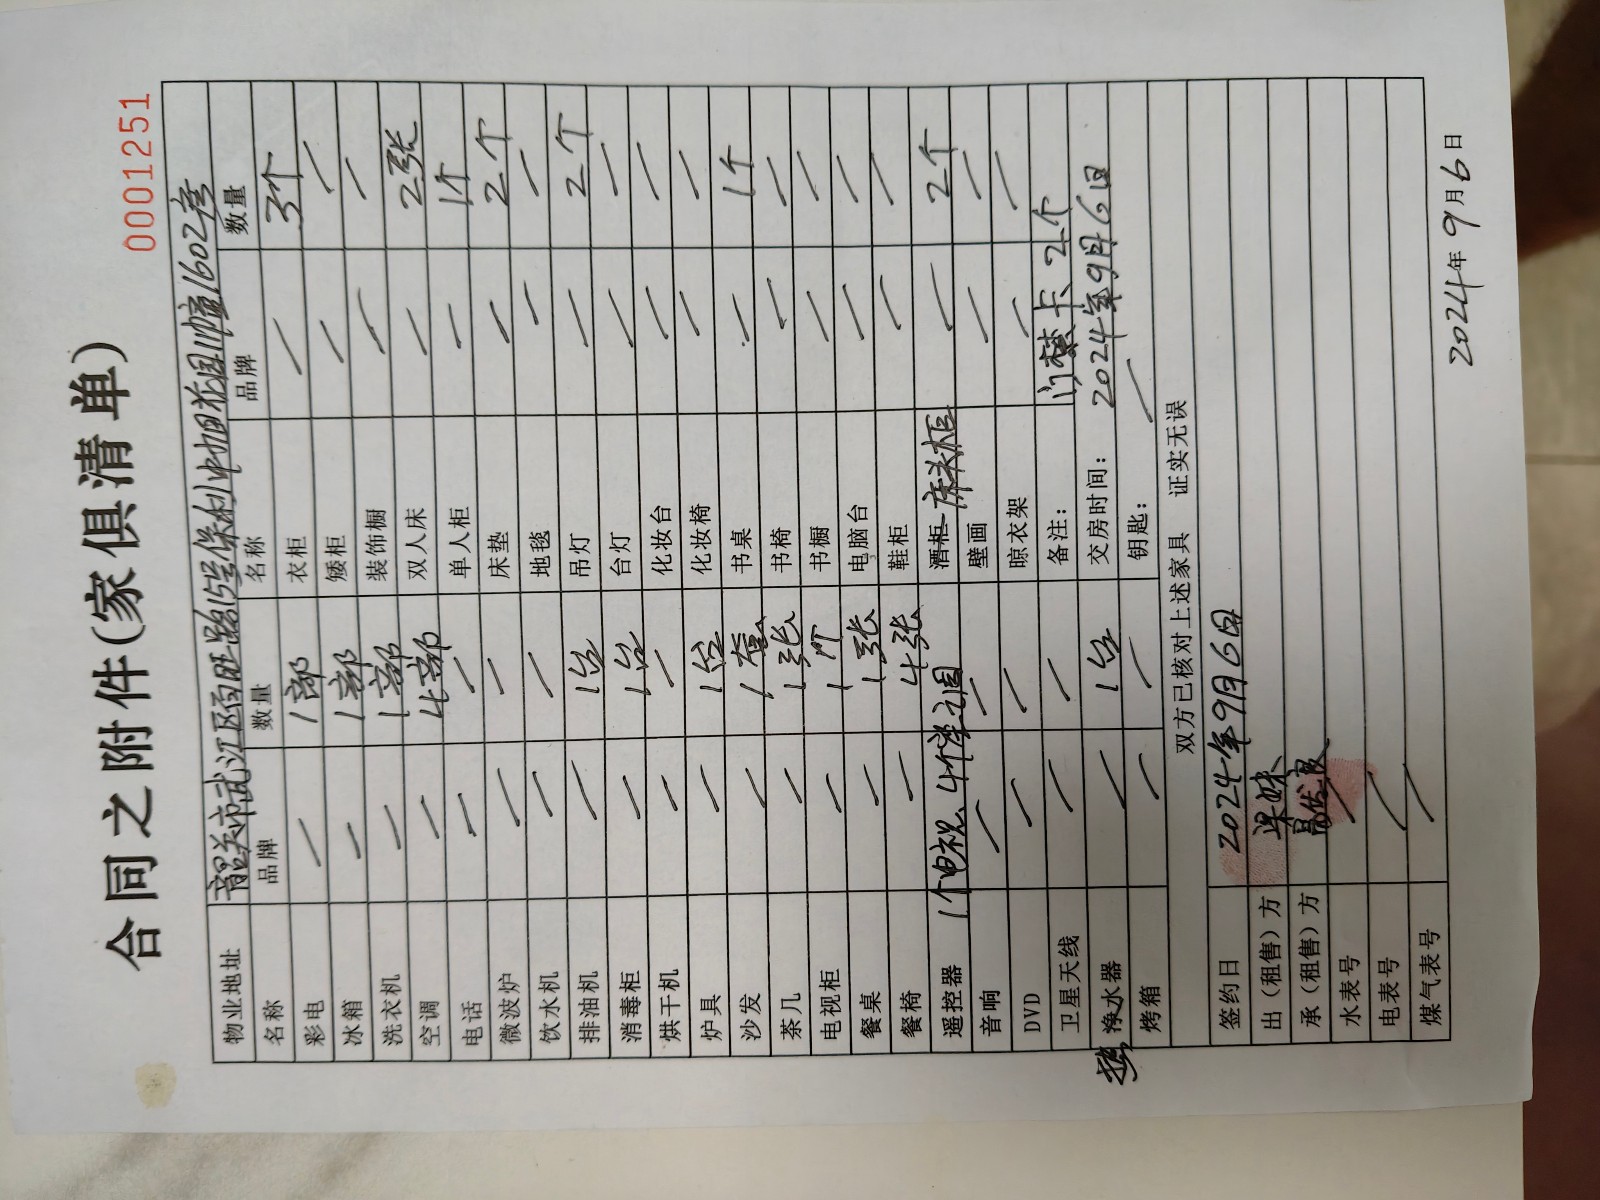 合同之附件(家俱清单)
0001251
物业地址 韶关市武江区百旺路15号保利中央花园11幢1602房
名称 品牌 数量 名称 品牌 数量
彩电 / 1部 衣柜 / 3个
冰箱 / 1部 矮柜 / /
洗衣机 / 1部 装饰橱 / /
空调 / 4部 双人床 / 2张
电话 / / 单人柜 / 1个
微波炉 / / 床垫 / 2个
饮水机 / / 地毯 / /
排油机 / 1台 吊灯 / 2个
消毒柜 / 1台 台灯 / /
烘干机 / / 化妆台 / /
炉具 / 1台 化妆椅 / /
沙发 / 1套 书桌 / 1个
茶几 / 1张 书椅 / /
电视柜 / 1个 书橱 / /
餐桌 / 1张 电脑台 / /
餐椅 / 4张 鞋柜 / /
遥控器 1个电视、4个空调 酒柜 床头柜 / 2个
音响 / / 壁画 / /
DVD / / 晾衣架 / /
卫星天线 / / 备注: 门禁卡2个
热 净水器 / 1台 交房时间: 2024年9月6日
烤箱 / / 钥匙: /
双方已核对上述家具 证实无误
签约日 2024年9月6日
出(租售)方 梁妹
承(租售)方
水表号 /
电表号 /
煤气表号 /
2024年9月6日